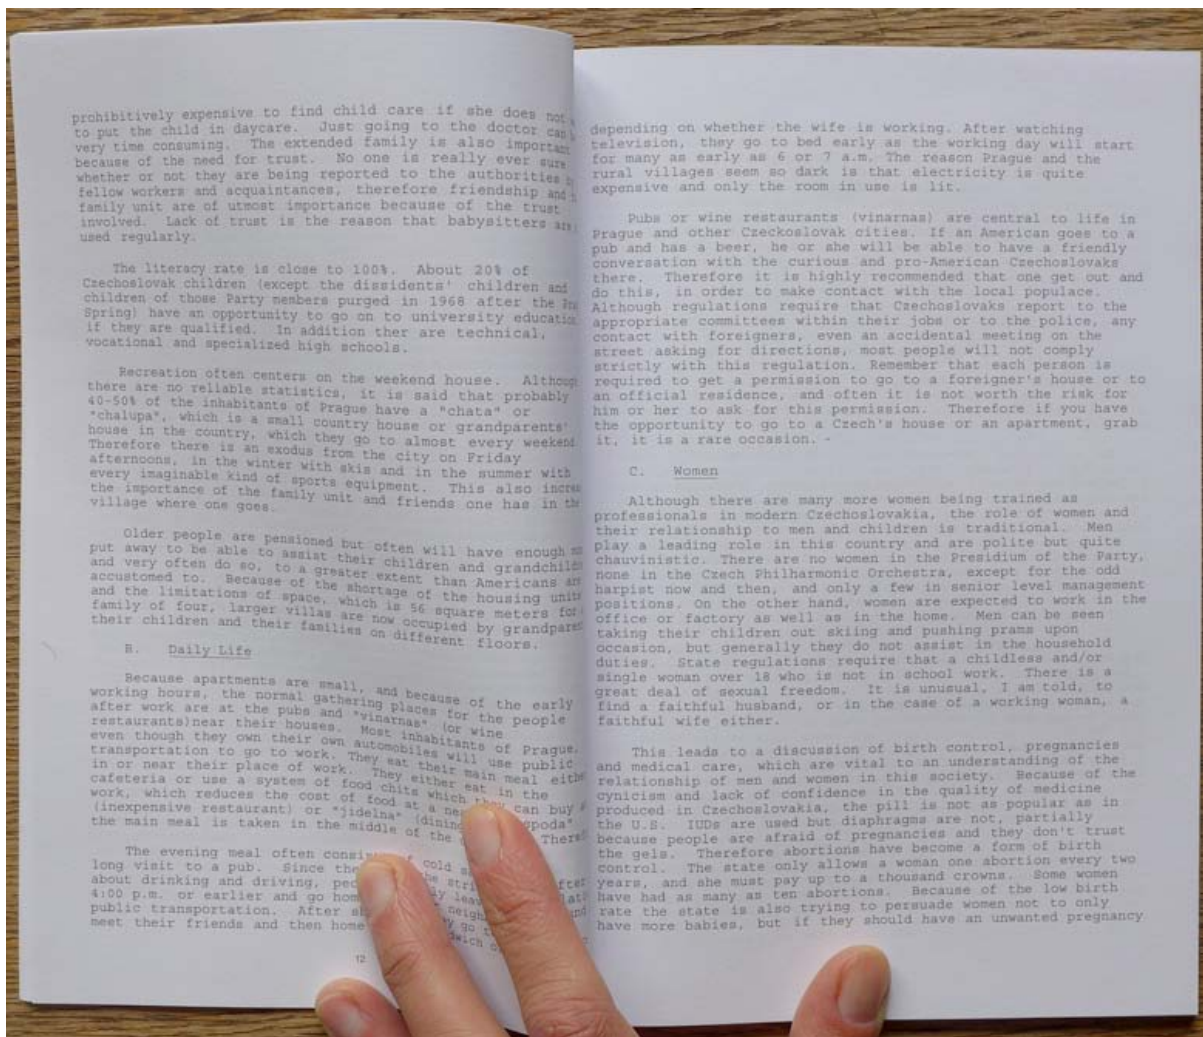 prohibitively expensive to find child care if she does not
to put the child in daycare. Just going to the doctor can
very time consuming. The extended family is also important
because of the need for trust. No one is really ever sure
whether or not they are being reported to the authorities
fellow workers and acquaintances, therefore friendship and
family unit are of utmost importance because of the trust
involved. Lack of trust is the reason that babysitters are
used regularly.
The literacy rate is close to 100%. About 20% of
Czechoslovak children (except the dissidents' children and
children of those Party members purged in 1968 after the
Spring) have an opportunity to go on to university education
if they are qualified. In addition ther are technical,
vocational and specialized high schools.
Recreation often centers on the weekend house. Although
there are no reliable statistics, it is said that probably
40-50% of the inhabitants of Prague have a "chata" or
"chalupa", which is a small country house or grandparents'
house in the country, which they go to almost every weekend.
Therefore there is an exodus from the city on Friday
afternoons, in the winter with skis and in the summer with
every imaginable kind of sports equipment. This also
the importance of the family unit and friends one has in the
village where one goes.
Older people are pensioned but often will have enough
put away to be able to assist their children and
and very often do so, to a greater extent than Americans are
accustomed to. Because of the shortage of the housing units
and the limitations of space, which is 56 square meters for
family of four, larger villas are now occupied by
their children and their families on different floors.
B. Daily Life
Because apartments are small, and because of the early
working hours, the normal gathering places for the people
after work are at the pubs and "vinarnas" (or wine
restaurants)near their houses. Most inhabitants of Prague,
even though they own their own automobiles will use public
transportation to go to work. They eat their main meal
in or near their place of work. They either eat in the
cafeteria or use a system of food chits which they can buy
work, which reduces the cost of food at a
(inexpensive restaurant) or "jidelna"
the main meal is taken in the middle of the
The evening meal often cold
long visit to a pub. Since
about drinking and driving,
4:00 p.m. or earlier and go
public transportation. After
meet their friends and then
12
depending on whether the wife is working. After watching
television, they go to bed early as the working day will start
for many as early as 6 or 7 a.m. The reason Prague and the
rural villages seem so dark is that electricity is quite
expensive and only the room in use is lit.
Pubs or wine restaurants (vinarnas) are central to life in
Prague and other Czeckoslovak cities. If an American goes to a
pub and has a beer, he or she will be able to have a friendly
conversation with the curious and pro-American Czechoslovaks
there. Therefore it is highly recommended that one get out and
do this, in order to make contact with the local populace.
Although regulations require that Czechoslovaks report to the
appropriate committees within their jobs or to the police, any
contact with foreigners, even an accidental meeting on the
street asking for directions, most people will not comply
strictly with this regulation. Remember that each person is
required to get a permission to go to a foreigner's house or to
an official residence, and often it is not worth the risk for
him or her to ask for this permission. Therefore if you have
the opportunity to go to a Czech's house or an apartment, grab
it, it is a rare occasion. -
C. Women
Although there are many more women being trained as
professionals in modern Czechoslovakia, the role of women and
their relationship to men and children is traditional. Men
play a leading role in this country and are polite but quite
chauvinistic. There are no women in the Presidium of the Party,
none in the Czech Philharmonic Orchestra, except for the odd
harpist now and then, and only a few in senior level management
positions. On the other hand, women are expected to work in the
office or factory as well as in the home. Men can be seen
taking their children out skiing and pushing prams upon
occasion, but generally they do not assist in the household
duties. State regulations require that a childless and/or
single woman over 18 who is not in school work. There is a
great deal of sexual freedom. It is unusual, I am told, to
find a faithful husband, or in the case of a working woman, a
faithful wife either.
This leads to a discussion of birth control, pregnancies
and medical care, which are vital to an understanding of the
relationship of men and women in this society. Because of the
cynicism and lack of confidence in the quality of medicine
produced in Czechoslovakia, the pill is not as popular as in
the U.S. IUDs are used but diaphragms are not, partially
because people are afraid of pregnancies and they don't trust
the gels. Therefore abortions have become a form of birth
control. The state only allows a woman one abortion every two
years, and she must pay up to a thousand crowns. Some women
have had as many as ten abortions. Because of the low birth
rate the state is also trying to persuade women not to only
have more babies, but if they should have an unwanted pregnancy